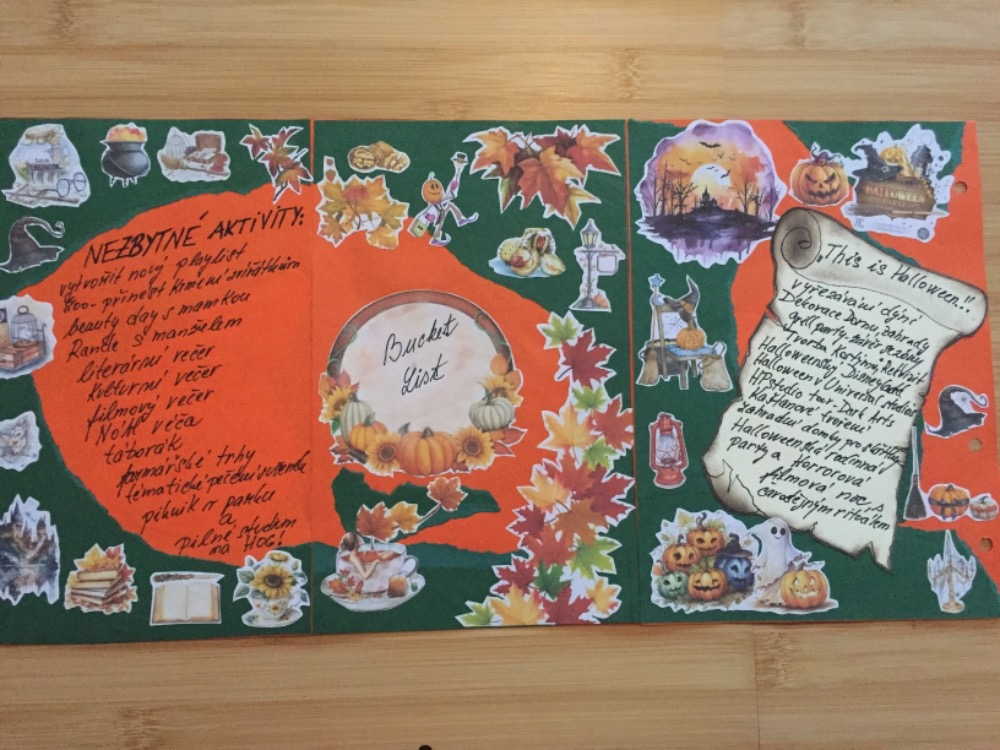 NEZBYTNÉ AKTIVITY:
vytvořit nový playlist
Zoo - přinést krmení zvířátkům
beauty day s mamkou
Rande s manželem
literární večer
Kulturní večer
filmový večer
táborák
farmářské trhy
tématické pečení sušenek
piknik v parku
a
pilné studium
na HOG!
Bucket
List
HALLOWEEN
„This is Halloween..."
vyřezávání dýní
Dekorace Domu, zahrady
grill party
Tvorba Kostýmu,
Halloweenský Disneyland
Halloween v Universal studios
HP studio tour Dark Arts
Kaštanové tvoření
zahradní domky pro
Halloweenská rodinná
party a Horrorová
filmová noc s
čarodějným rituálem